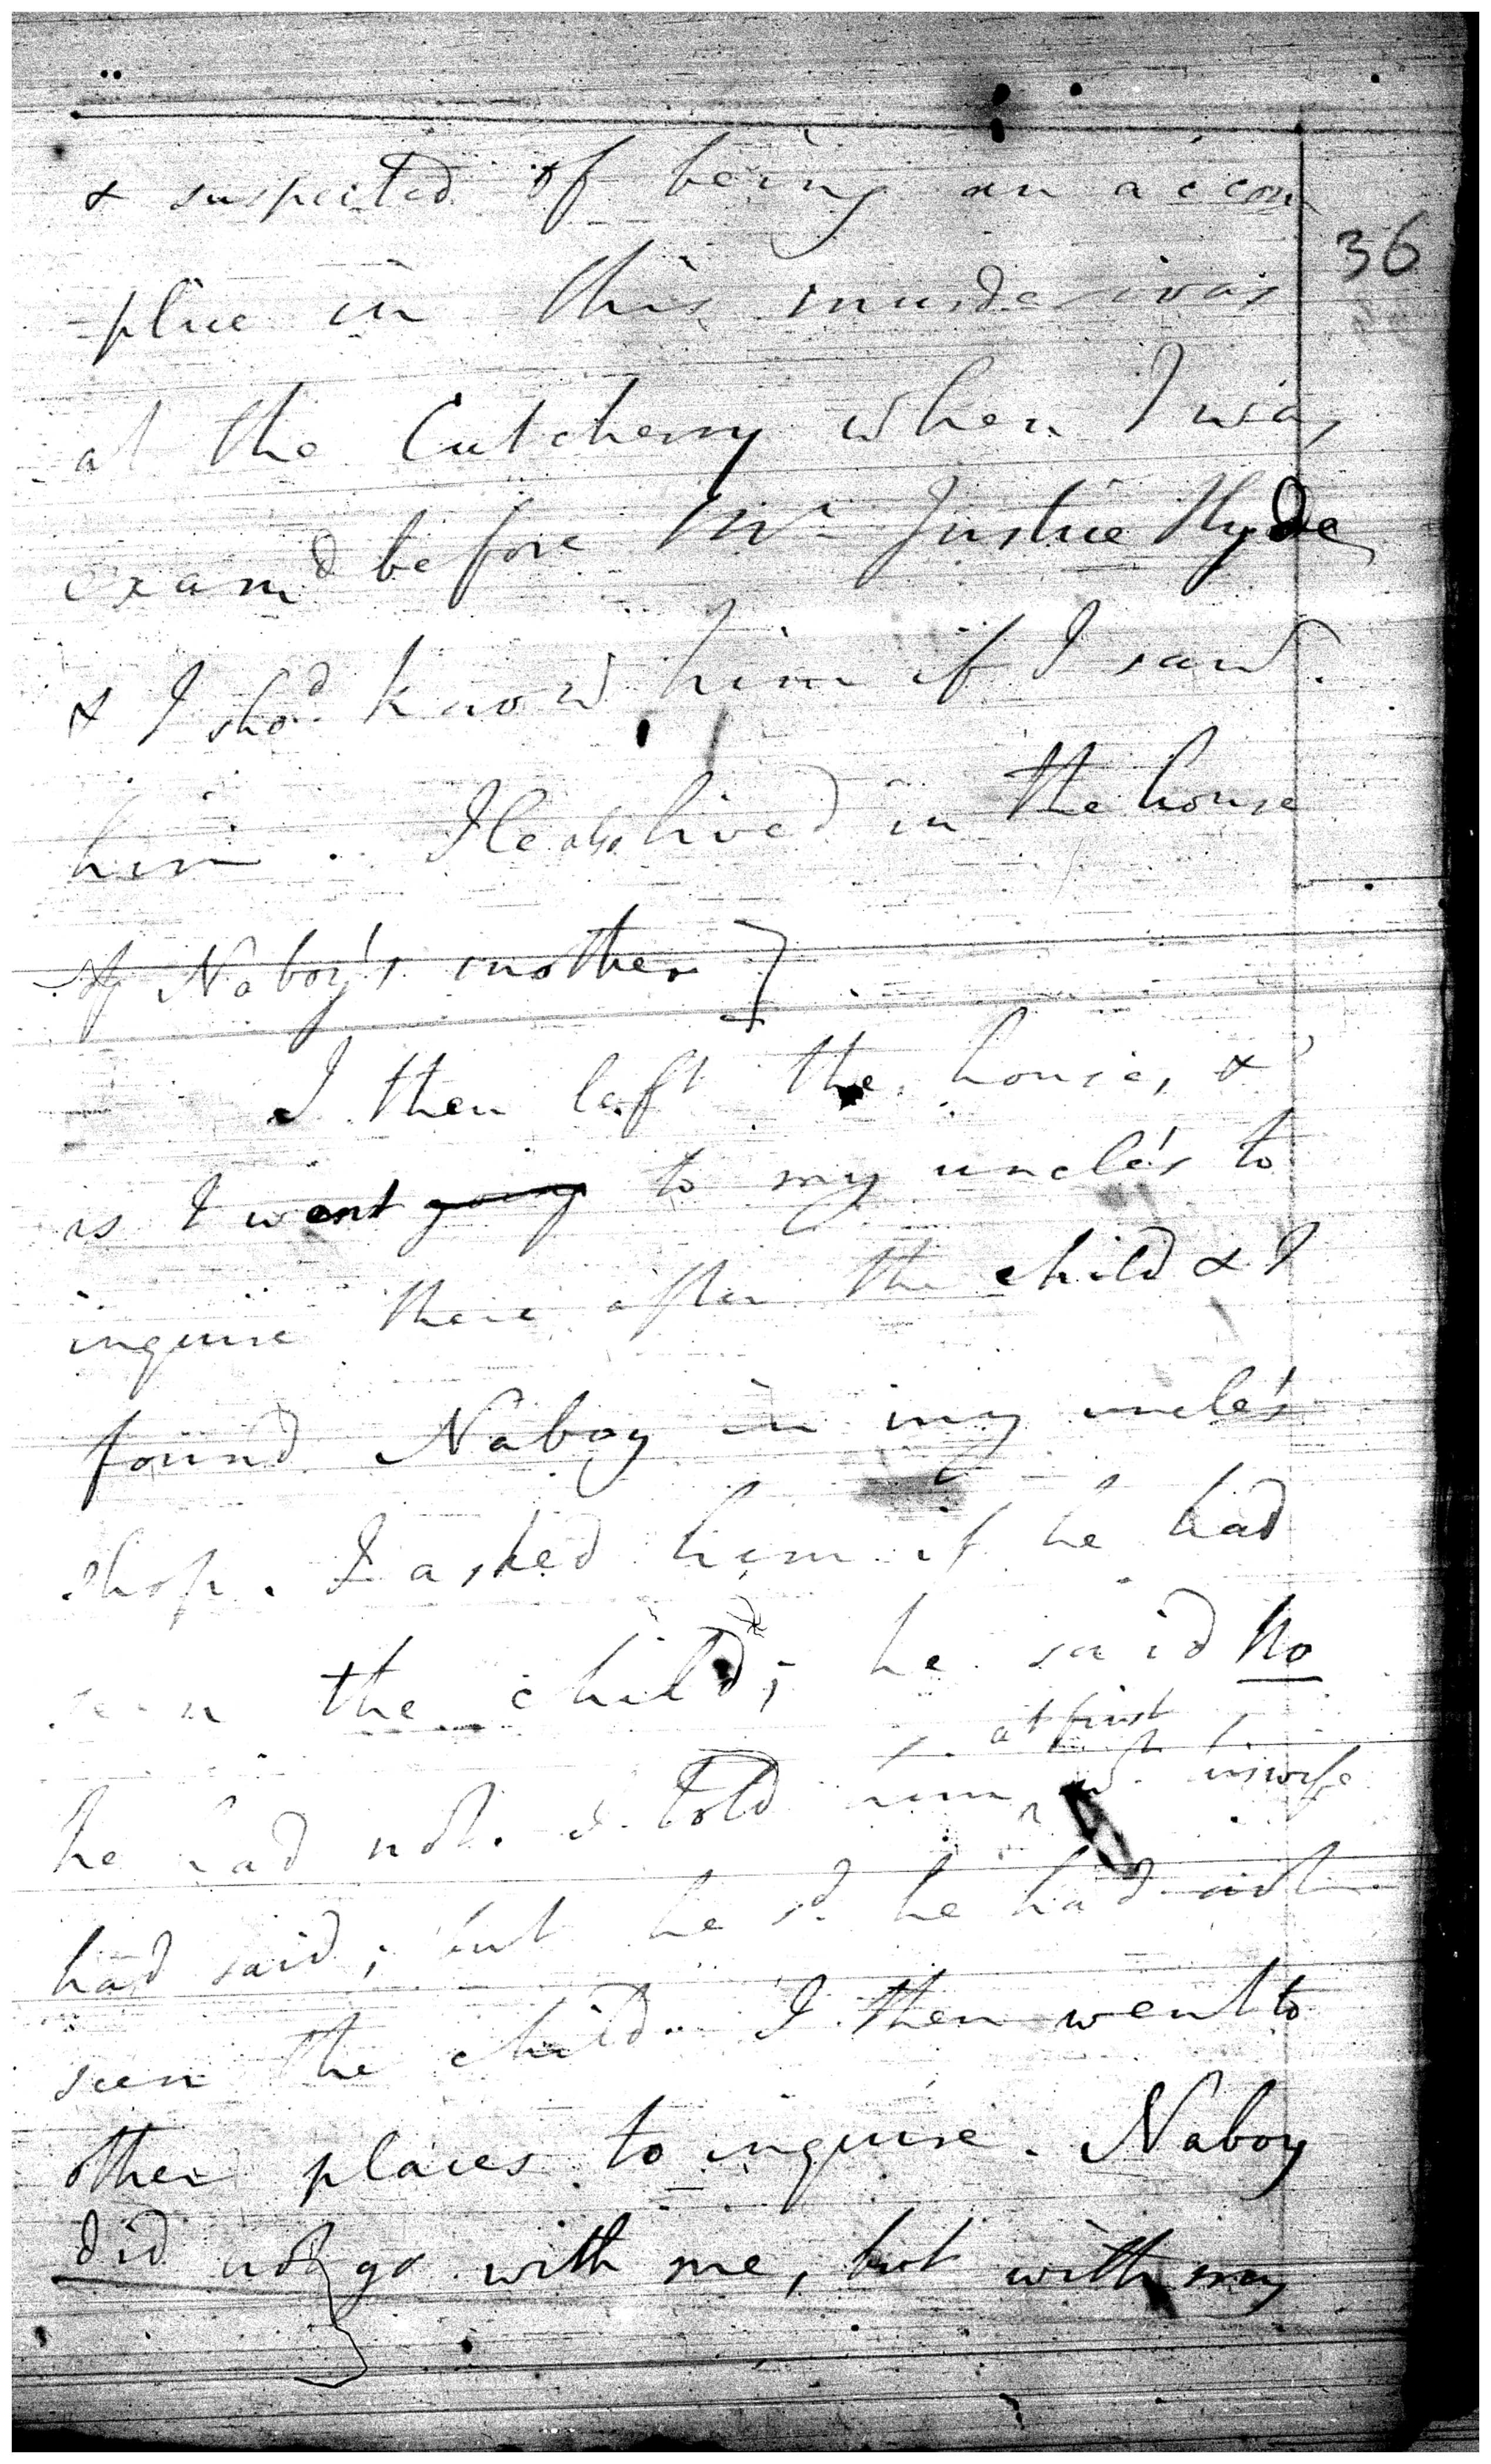 & suspected of being an accom
36
-plice in this murder was
at the Cutcherry when I was
examd before Mr Justice Hyde
& I shod know him if I saw
him. He also lived in the house
of Naboy's mother]
I then left the house, &
as I went going to my uncle's to
inquire there after the child & I
found Naboy in my uncle's
shop. I asked him if he had
seen the child; he said No
at first
he had not. I told him wt his wife
had said; but he sd he had not
seen the child. I then went to
other places to inquire. Naboy
did not go with me, but with my